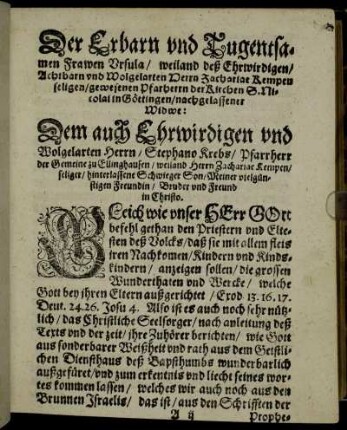 Der Erbarn vnd Tugentsa-
men Frawen Vrsula / weiland deß Ehrwirdigen /
Achtbarn vnd Wolgelarten Herrn Zachariae Kempen
seligen / gewesenen Pfarherrn der Kirchen S. Ni-
colai in Göttingen / nachgelassener
Widwe:
Dem auch Ehrwirdigen vnd
Wolgelarten Herrn / Stephano Krebs / Pfarrherr
der Gemeine zu Ellinghausen / weiland Herrn Zachariae Kempen /
seliger / hinterlassene Schwieger Son / Meiner vielgün-
stigen Freundin / Bruder vnd Freund
in Christo.
GLeich wie vnser HErr GOtt
befehl gethan den Priestern vnd Elte-
sten deß Volcks / daß sie mit allem fleis
iren Nachkomen / Kindern vnd Kinds-
kindern / anzeigen sollen / die grossen
Wunderthaten vnd Wercke / welche
Gott bey ihren Eltern außgerichtet / Exod 13. 16. 17.
Deut. 24. 26. Josu 4. Also ist es auch noch sehr nütz-
lich / das Christliche Seelsorger / nach anleitung deß
Texts vnd der zeit / ihre Zuhörer berichten / wie Gott
aus sonderbarer Weißheit vnd rath aus dem Geistli-
chen Diensthaus deß Bapsthumbs wunderbarlich
außgefüret / vnd zum erkentnis vnd liecht seines wor-
tes kommen lassen / welches wir auch noch aus den
Brunnen Israelis / das ist / aus den Schrifften der
A ij Prophe-